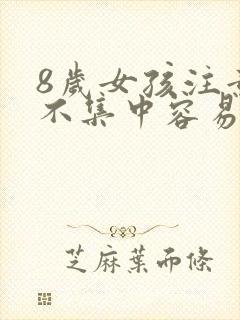 8歲女孩注
不集中容易
芝麻葉而條